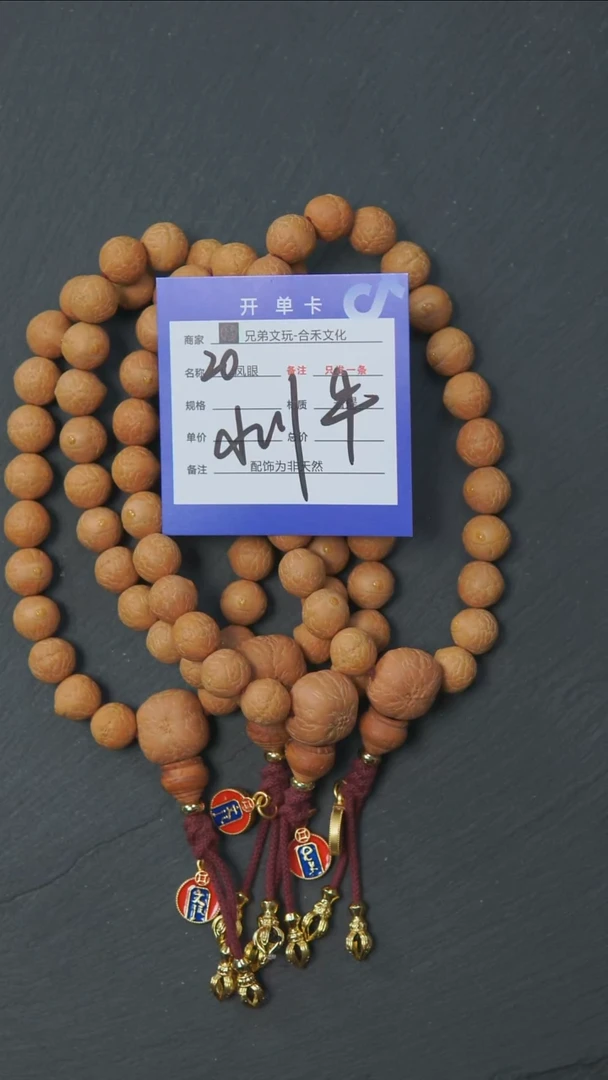 开单卡
商家 兄弟文玩-合禾文化
名称 20 凤眼 备注 只发一条
规格 材质
单价 总价
备注 配饰为非天然